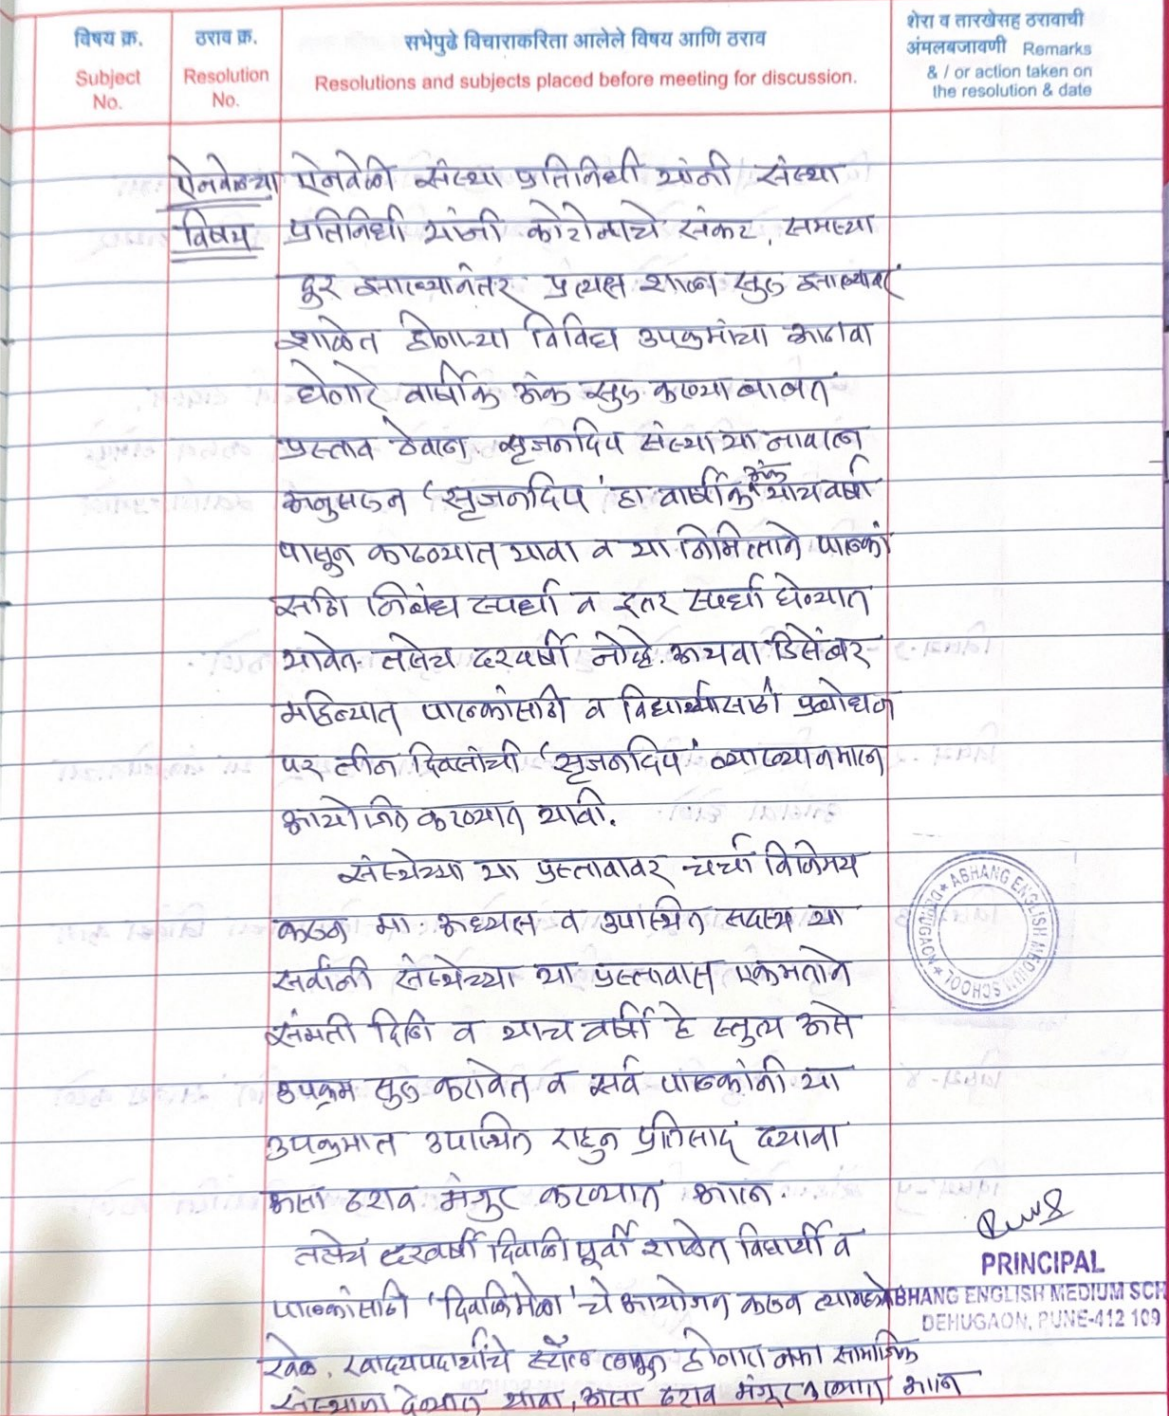 विषय क्र.
Subject
No.
ठराव क्र.
Resolution
No.
सभेपुढे विचाराकरिता आलेले विषय आणि ठराव
Resolutions and subjects placed before meeting for discussion.
शेरा व तारखेसह ठरावाची
अंमलबजावणी Remarks
& / or action taken on
the resolution & date
ऐनवेळच्या
विषय
ऐनवेळी संस्था प्रतिनिधी यांनी संस्था
प्रतिनिधी यांनी कोरोनाचे संकट, समस्या
दुर झाल्यानंतर प्रत्यक्ष शाळा सुरु झाल्यावर
शाळेत होणाऱ्या विविध उपक्रमांचा आढावा
घेणारे वार्षीक अंक सुरु करण्या बाबत
प्रस्ताव ठेवला. सृजनदिप संस्थाचा नावाला
अनुसरुन 'सृजनदिप' हा वार्षीक अंक याच वर्षा
पासुन काढण्यात यावा व या निमित्ताने पालकां
साठी निबंध स्पर्धा व इतर स्पर्धा घेण्यात
यावेत. तसेच दरवर्षी नोव्हे. अथवा डिसेंबर
महिन्यात पालकांसाठी व विद्यार्थ्यांसाठी प्रबोधन
पर तीन दिवसांची 'सृजनदिप' व्याख्यानमाला
आयोजित करण्यात यावी.
संस्थेच्या या प्रस्तावावर चर्चा विनिमय
करुन मा. अध्यक्ष व उपास्थित सदस्य या
सर्वांनी संस्थेच्या या प्रस्तावास एकमताने
संमती दिली व याच वर्षी हे स्तुत्य असे
उपक्रम सुरु करावेत व सर्व पालकांनी या
उपक्रमात उपास्थित राहुन प्रतिसाद दयावा
असा ठराव मंजुर करण्यात आला.
तसेच दरवर्षी दिवाळी पूर्वी शाळेत विद्यार्थी व
पालकांसाठी 'दिवाळीमेळा' चे आयोजन करुन त्यामध्ये
खेळ, खाद्यपदार्थांचे स्टॉल लावुन होणारा नफा सामाजिक
संस्थाना देण्यात यावा, असा ठराव मंजूर करण्यात आला
ABHANG ENGLISH MEDIUM SCHOOL
DEHUGAON
PRINCIPAL
ABHANG ENGLISH MEDIUM SCH
DEHUGAON, PUNE-412 109